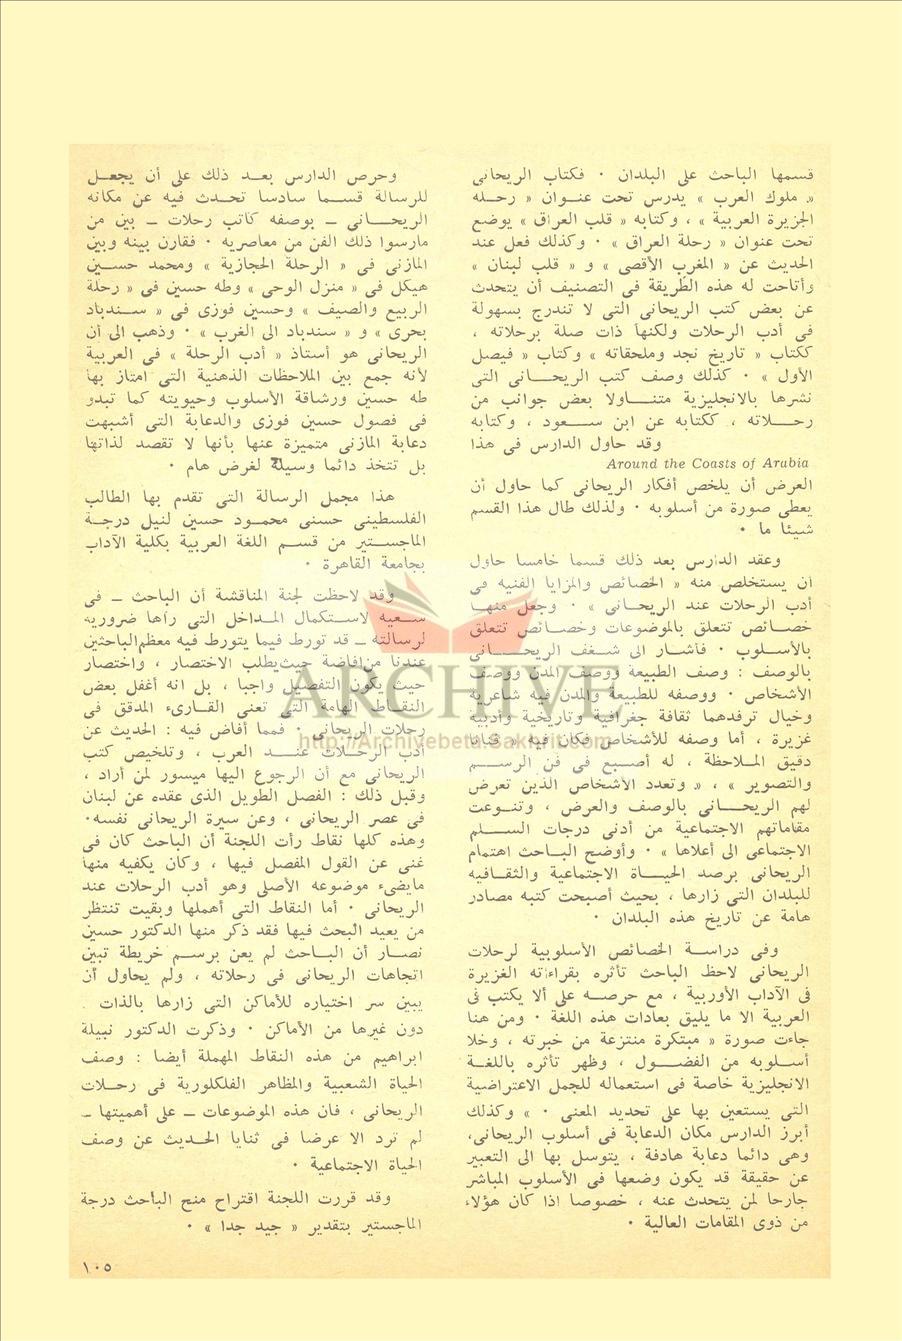 قسمها الباحث على البلدان . فكتاب الريحانى
« ملوك العرب » يدرس تحت عنوان « رحله
الجزيرة العربية » ، وكتابه « قلب العراق » يوضع
تحت عنوان « رحلة العراق » . وكذلك فعل عند
الحديث عن « المغرب الأقصى » و « قلب لبنان »
وأتاحت له هذه الطريقة فى التصنيف أن يتحدث
عن بعض كتب الريحانى التى لا تندرج بسهولة
فى أدب الرحلات ولكنها ذات صلة برحلاته ،
ككتاب « تاريخ نجد وملحقاته » وكتاب « فيصل
الأول » . كذلك وصف كتب الريحانى التى
نشرها بالانجليزية متناولا بعض جوانب من
رحلاته ، ككتابه عن ابن سعود ، وكتابه
وقد حاول الدارس فى هذا
Around the Coasts of Arabia
العرض أن يلخص أفكار الريحانى كما حاول أن
يعطى صورة من أسلوبه . ولذلك طال هذا القسم
شيئا ما .
وعقد الدارس بعد ذلك قسما خامسا حاول
أن يستخلص منه « الخصائص والمزايا الفنيه فى
أدب الرحلات عند الريحانى » . وجعل منها
خصائص تتعلق بالموضوعات وخصائص تتعلق
بالأسلوب . فأشار الى شغف الريحانى
بالوصف : وصف الطبيعة ووصف المدن ووصف
الأشخاص . ووصفه للطبيعة والمدن فيه شاعرية
وخيال ترفدهما ثقافة جغرافية وتاريخية وأدبية
غزيرة ، أما وصفه للأشخاص فكان فيه « فنانا
دقيق الملاحظة ، له أصبع فى فن الرسم
والتصوير » ، « وتعدد الأشخاص الذين تعرض
لهم الريحانى بالوصف والعرض ، وتنوعت
مقاماتهم الاجتماعية من أدنى درجات السلم
الاجتماعى الى أعلاها » . وأوضح الباحث اهتمام
الريحانى برصد الحياة الاجتماعية والثقافيه
للبلدان التى زارها ، بحيث أصبحت كتبه مصادر
هامة عن تاريخ هذه البلدان .
وفى دراسة الخصائص الأسلوبية لرحلات
الريحانى لاحظ الباحث تأثره بقراءاته الغزيرة
فى الآداب الأوربية ، مع حرصه على ألا يكتب فى
العربية الا ما يليق بعادات هذه اللغة . ومن هنا
جاءت صورة « مبتكرة منتزعة من خبرته ، وخلا
أسلوبه من الفضول ، وظهر تأثره باللغة
الانجليزية خاصة فى استعماله للجمل الاعتراضية
التى يستعين بها على تحديد المعنى . » وكذلك
أبرز الدارس مكان الدعابة فى أسلوب الريحانى،
وهى دائما دعابة هادفة ، يتوسل بها الى التعبير
عن حقيقة قد يكون وضعها فى الأسلوب المباشر
جارحا لمن يتحدث عنه ، خصوصا اذا كان هؤلاء
من ذوى المقامات العالية .
وحرص الدارس بعد ذلك على أن يجعل
للرسالة قسما سادسا تحدث فيه عن مكانه
الريحانى – بوصفه كاتب رحلات – بين من
مارسوا ذلك الفن من معاصريه . فقارن بينه وبين
المازنى فى « الرحلة الحجازية » ومحمد حسين
هيكل فى « منزل الوحى » وطه حسين فى « رحلة
الربيع والصيف » وحسين فوزى فى « سندباد
بحرى » و « سندباد الى الغرب » . وذهب الى أن
الريحانى هو أستاذ « أدب الرحلة » فى العربية
لأنه جمع بين الملاحظات الذهنية التى امتاز بها
طه حسين ورشاقة الأسلوب وحيويته كما تبدو
فى فصول حسين فوزى والدعابة التى أشبهت
دعابة المازنى متميزة عنها بأنها لا تقصد لذاتها
بل تتخذ دائما وسيلة لغرض هام .
هذا مجمل الرسالة التى تقدم بها الطالب
الفلسطينى حسنى محمود حسين لنيل درجة
الماجستير من قسم اللغة العربية بكلية الآداب
بجامعة القاهرة .
وقد لاحظت لجنة المناقشة أن الباحث – فى
سعيه لاستكمال المداخل التى رآها ضرورية
لرسالته – قد تورط فيما يتورط فيه معظم الباحثين
عندنا من افاضة حيث يطلب الاختصار ، واختصار
حيث يكون التفصيل واجبا ، بل انه أغفل بعض
النقاط الهامة التى تعنى القارىء المدقق فى
رحلات الريحانى . فمما أفاض فيه : الحديث عن
أدب الرحلات عند العرب ، وتلخيص كتب
الريحانى مع أن الرجوع اليها ميسور لمن أراد ،
وقبل ذلك : الفصل الطويل الذى عقده عن لبنان
فى عصر الريحانى ، وعن سيرة الريحانى نفسه.
وهذه كلها نقاط رأت اللجنة أن الباحث كان فى
غنى عن القول المفصل فيها ، وكان يكفيه منها
مايضىء موضوعه الأصلى وهو أدب الرحلات عند
الريحانى . أما النقاط التى أهملها وبقيت تنتظر
من يعيد البحث فيها فقد ذكر منها الدكتور حسين
نصار أن الباحث لم يعن برسم خريطة تبين
اتجاهات الريحانى فى رحلاته ، ولم يحاول أن
يبين سر اختياره للأماكن التى زارها بالذات
دون غيرها من الأماكن . وذكرت الدكتور نبيلة
ابراهيم من هذه النقاط المهملة أيضا : وصف
الحياة الشعبية والمظاهر الفلكلورية فى رحلات
الريحانى ، فان هذه الموضوعات – على أهميتها –
لم ترد الا عرضا فى ثنايا الحديث عن وصف
الحياة الاجتماعية .
وقد قررت اللجنة اقتراح منح الباحث درجة
الماجستير بتقدير « جيد جدا » .
١٠٥
ARCHIVE
http://Archivebeta.Sakhrit.com